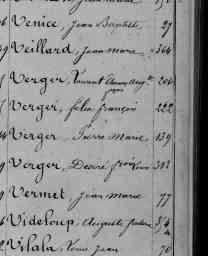 Venice, Jean Baptiste 27
Veillard, Jean Marie 364
Verger, Laurent
Verger, felix françois 222
Verger, Pierre Marie 139
Verger, Desiré
Vermet, Jean Marie 77
Videloup, Auguste
Vilala, Louis Jean 70